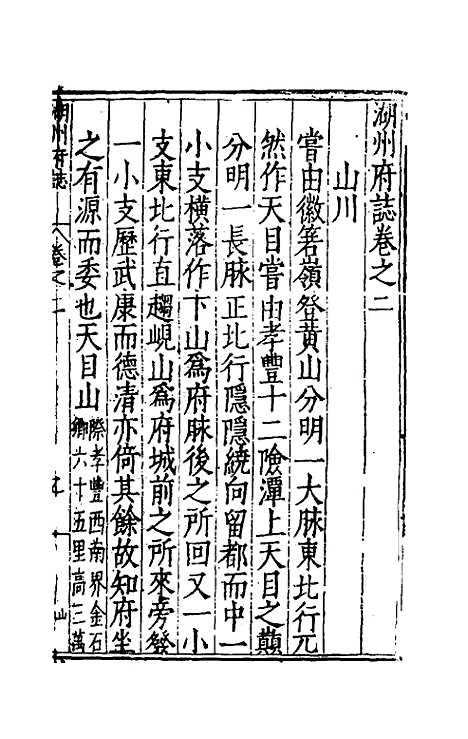 湖州府誌卷之二
山川
嘗由徽箬嶺登黃山分明一大脉東北行兀
然作天目嘗由孝豐十二險潭上天目之巔
分明一長脉正北行隱隱繞向留都而中一
小支橫落作卞山爲府脉後之所回又一小
支東北行直趨峴山爲府城前之所來旁發
一小支歷武康而德清亦倚其餘故知府坐
之有源而委也天目山
際孝豐西南界金石
鄉六十五里高三萬
湖州府誌 卷之二